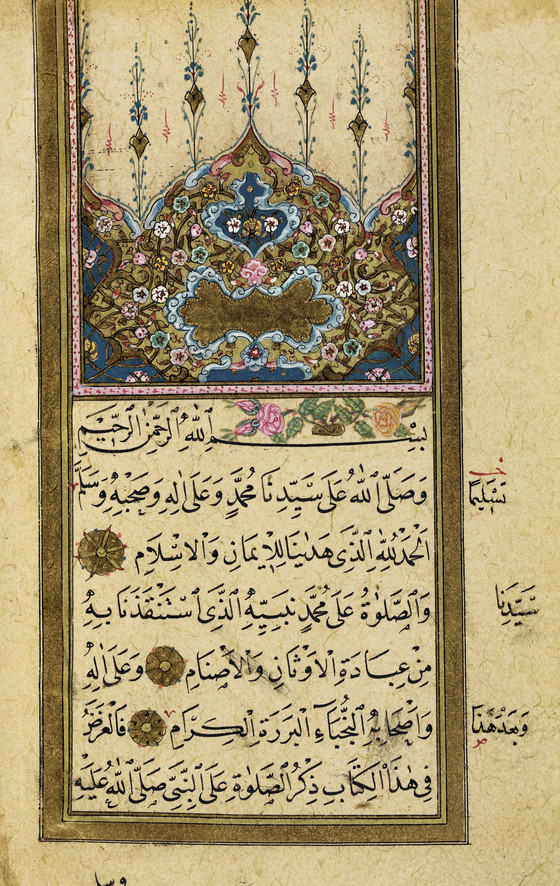 بِسْمِ اللّٰهِ الرَّحْمٰنِ الرَّحِيْمِ
وَصَلَّى اللّٰهُ عَلٰى سَيِّدِنَا مُحَمَّدٍ وَعَلٰى اٰلِهٖ وَصَحْبِهٖ وَسَلَّمَ
تَسْلِيمًا
اَلْحَمْدُ لِلّٰهِ الَّذِى هَدٰينَا لِلْاِيمَانِ وَالْاِسْلَامِ
وَالصَّلٰوةُ عَلٰى مُحَمَّدٍ نَبِيِّهِ الَّذِى اسْتَنْقَذَنَا بِهٖ
سَيِّدِنَا
مِنْ عِبَادَةِ الْاَوْثَانِ وَالْاَصْنَامِ وَعَلٰى اٰلِهٖ
وَاَصْحَابِهِ النُّجَبَاءِ الْبَرَرَةِ الْكِرَامِ فَالْغَرَضُ
وَبَعْدَ هٰذَا
فِى هٰذَا الْكِتَابِ ذِكْرُ الصَّلٰوةِ عَلَى النَّبِىِّ صَلَّى اللّٰهُ عَلَيْهِ
وسلم